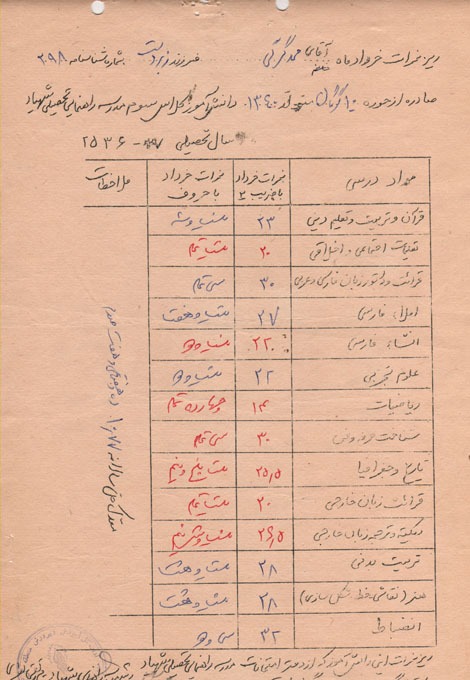 ریز نمرات خرداد ماه آقای محمد گرگی فرزند بشماره شناسنامه ۲۹۸
صادره از حوزه ۱۰ گرگان متولد ۱۳۴۰ دانش آموز کلاس سوم مدرسه راهنمائی تحصیلی شهیاد
سال تحصیلی ۲۵۳۶ -
مواد درسی نمرات خرداد با ضریب ۲ نمرات خرداد با حروف ملاحظات
قرآن و تربیت و تعلیم دینی ۲۳ بیست و سه
تعلیمات اجتماعی و اخلاقی ۲۰ بیست تمام
قرائت و دستور زبان فارسی و عربی ۳۰ سی تمام
املاء فارسی ۲۷ بیست و هفت
انشاء فارسی ۲۲ بیست و دو
علوم تجربی ۲۲ بیست و دو
ریاضیات ۱۴ چهارده تمام
شناخت حرفه و فن ۳۰ سی تمام
تاریخ و جغرافیا ۲۵٫۵ بیست و پنج و نیم
قرائت زبان خارجی ۲۰ بیست تمام
دیکته و ترجمه زبان خارجی ۲۶٫۵ بیست و شش و نیم
تربیت بدنی ۲۸ بیست و هشت
هنر (نقاشی خط شکل سازی) ۲۸ بیست و هشت
انضباط ۳۲ سی و دو
معدل کتبی سالانه ۱۰٫۷۷
ریز نمرات این دانش آموز که از دفتر امتحانات مدرسه راهنمائی تحصیلی شهیاد